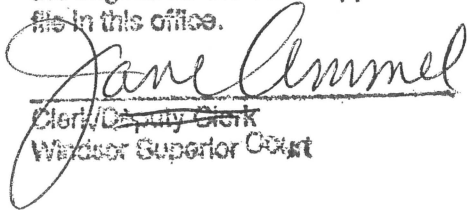 file in this office.
Jane Ammel
Clerk/Deputy Clerk
Windsor Superior Court